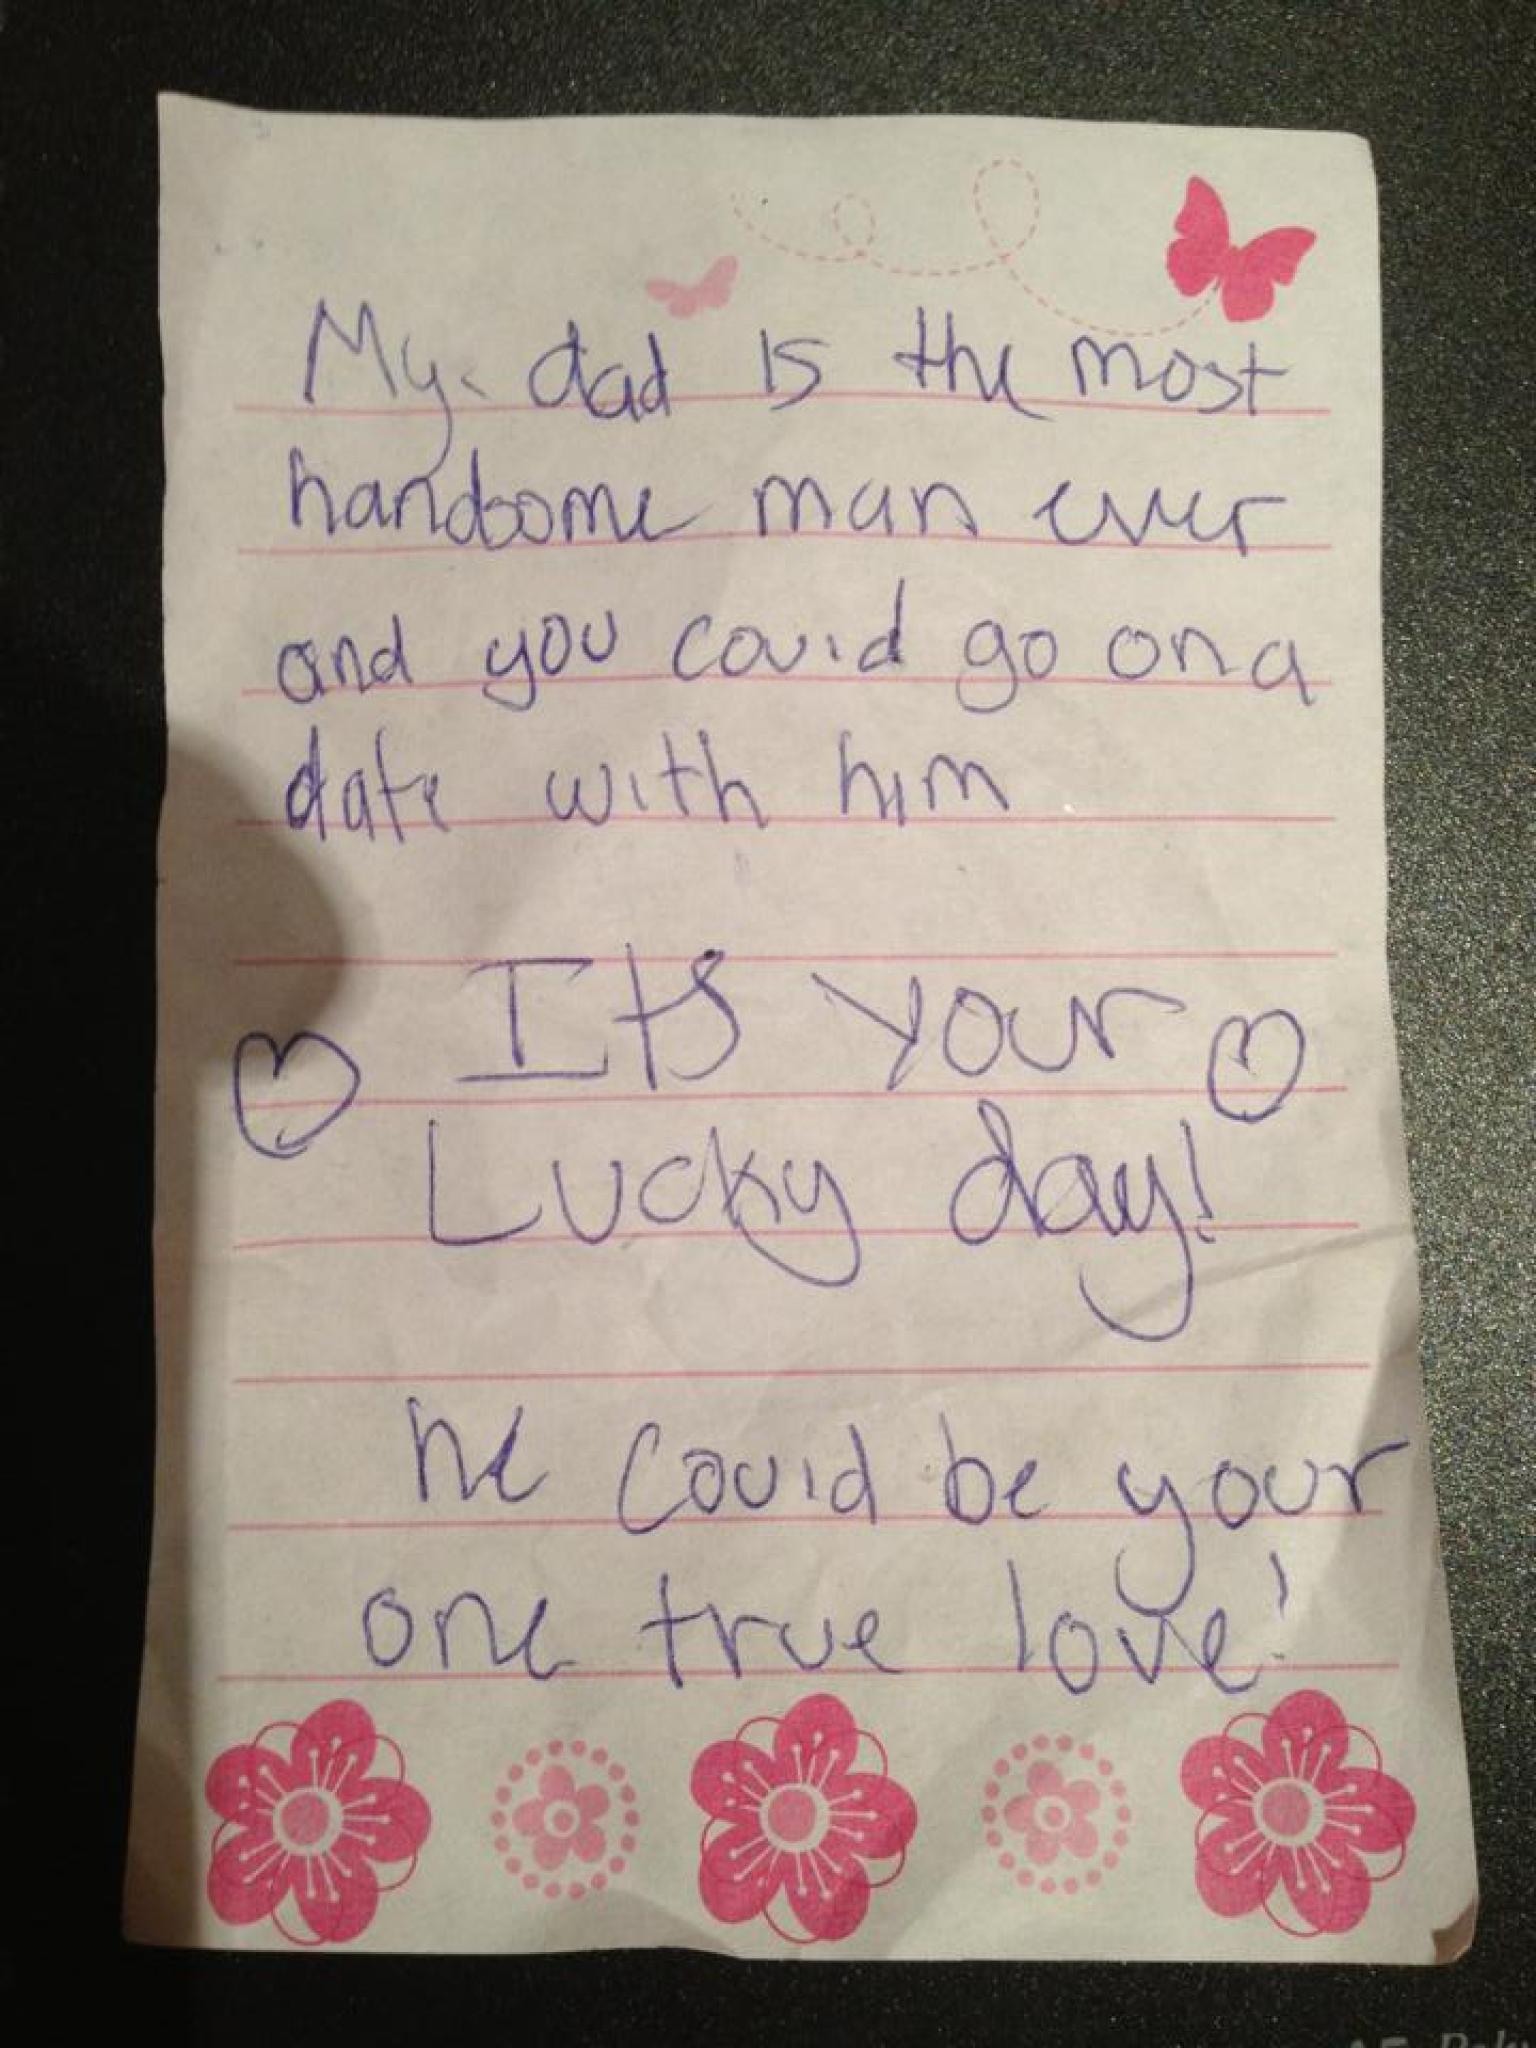 My dad is the most
handsome man ever
and you could go on a
date with him
Its your
Lucky day!
he could be your
one true love!